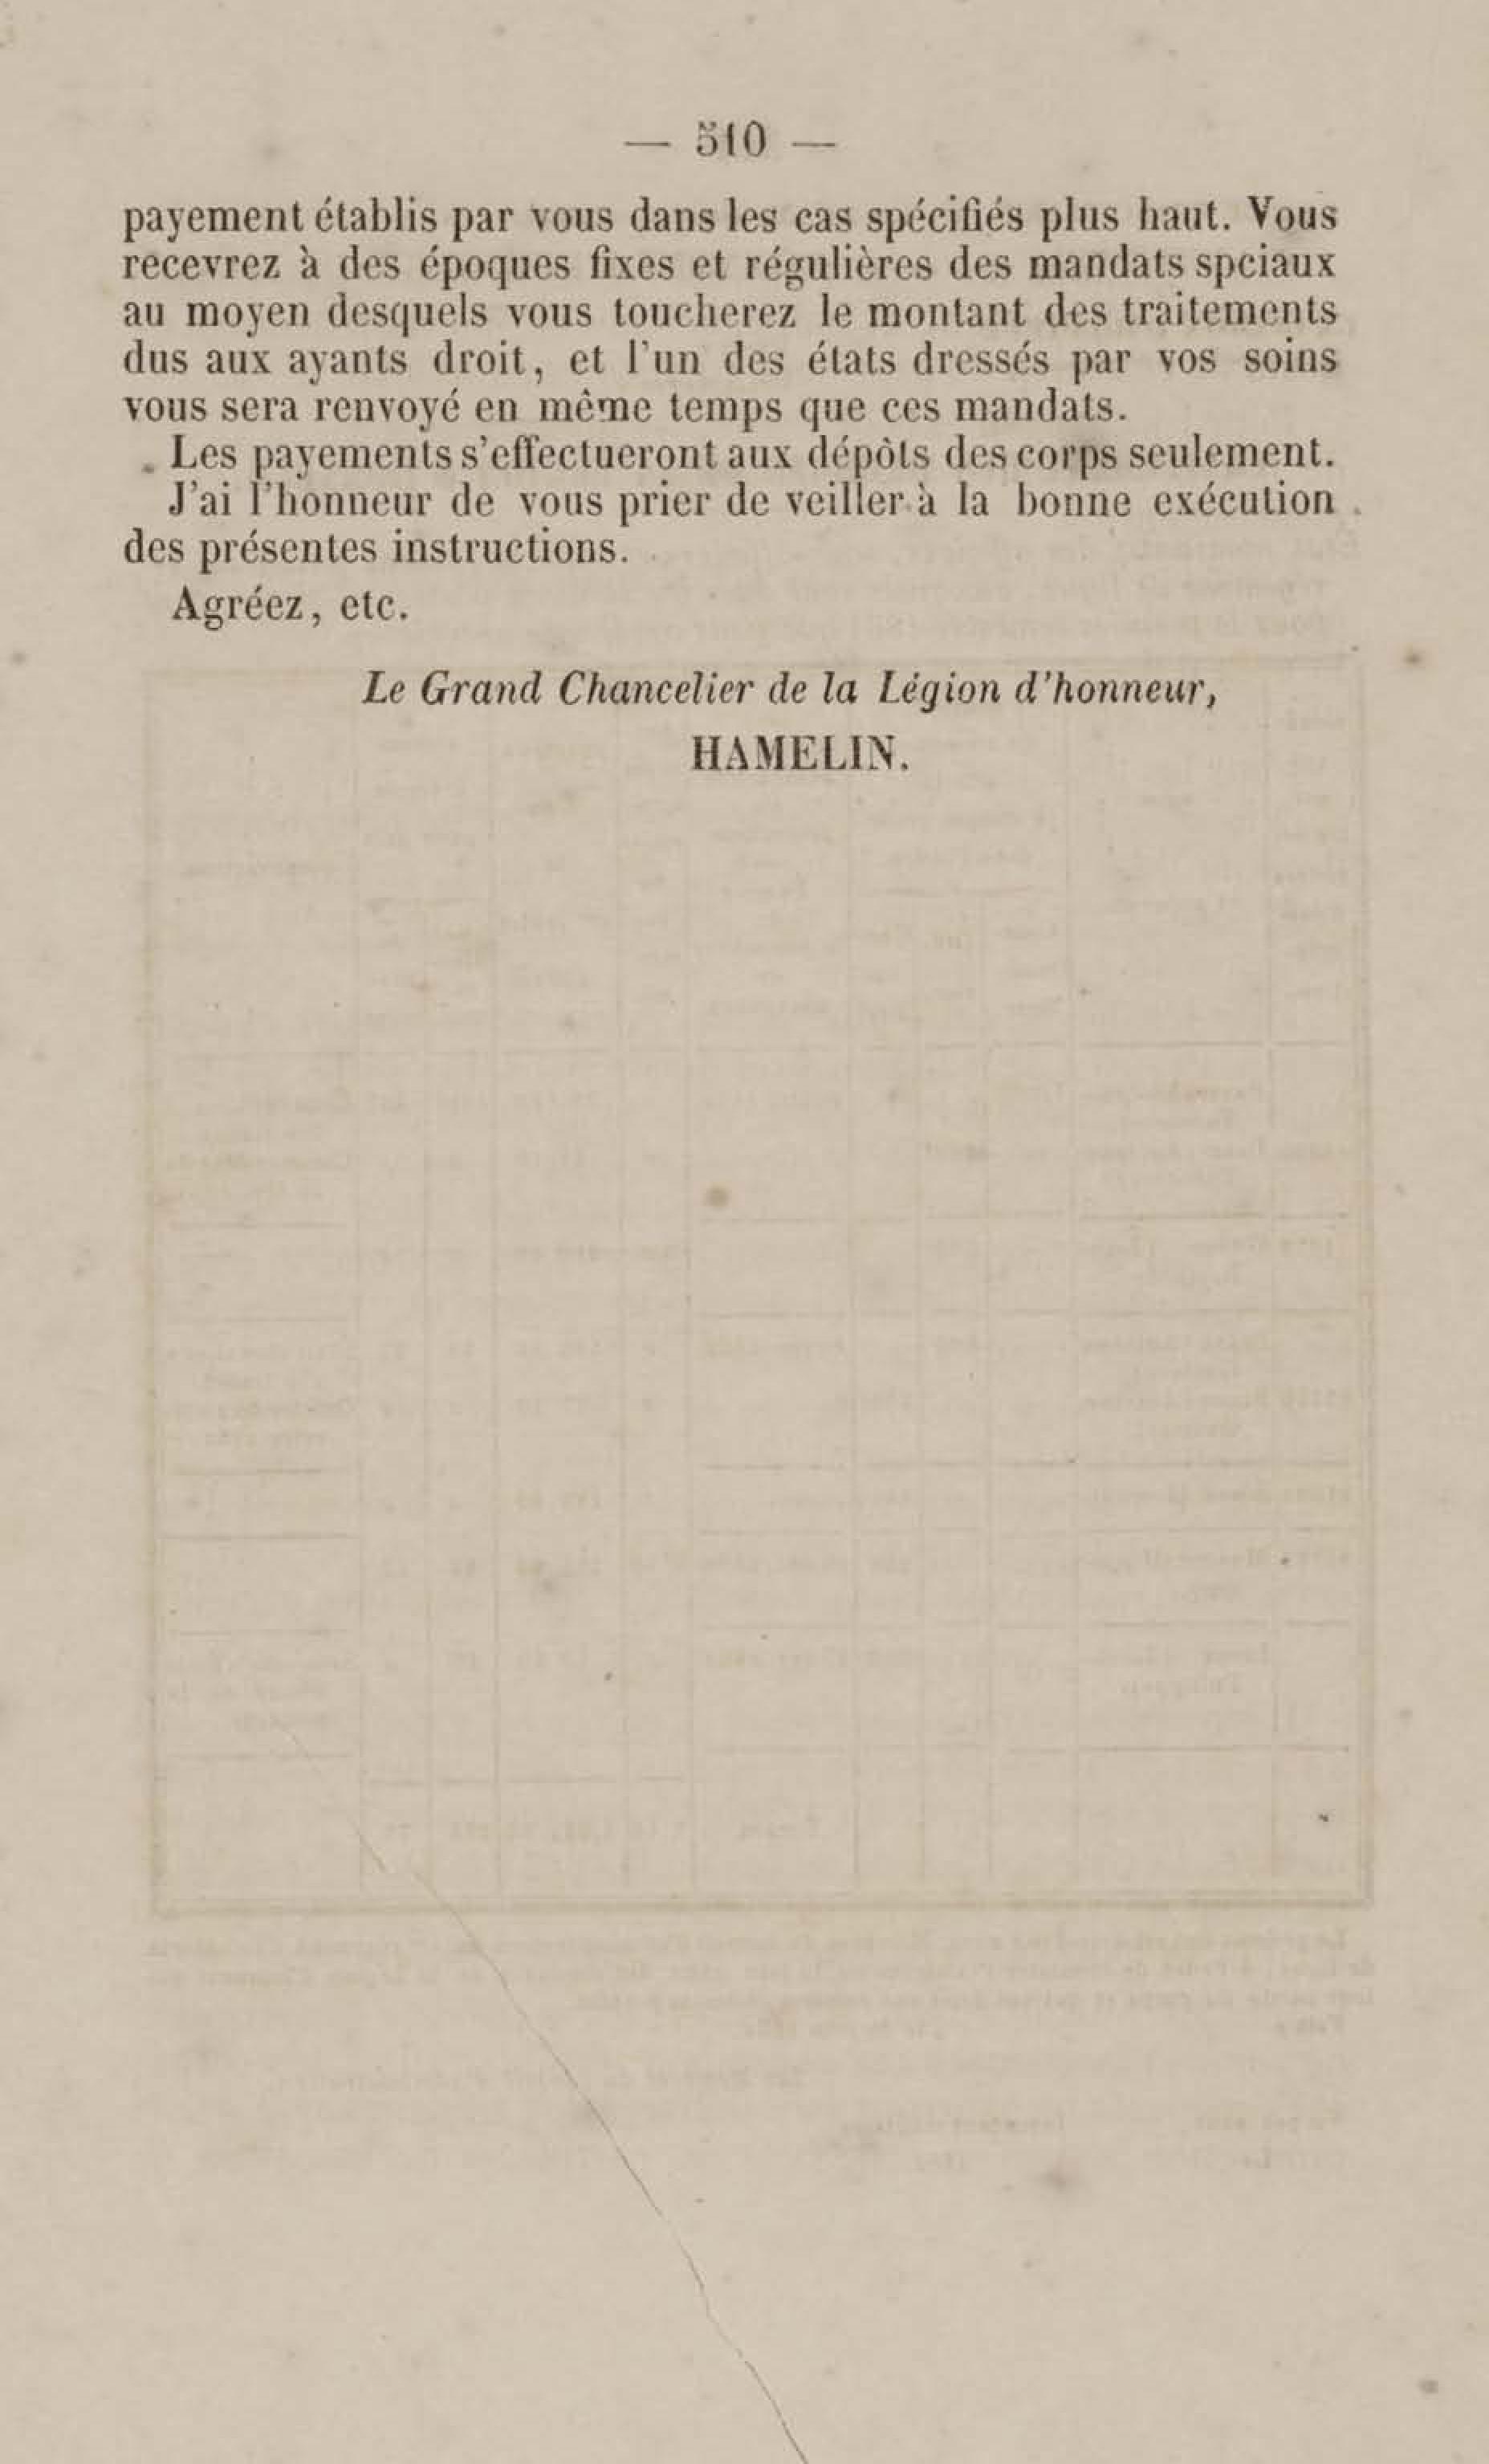 — 510 —
payement établis par vous dans les cas spécifiés plus haut. Vous
recevrez à des époques fixes et régulières des mandats spciaux
au moyen desquels vous toucherez le montant des traitements
dus aux ayants droit, et l'un des états dressés par vos soins
vous sera renvoyé en même temps que ces mandats.
Les payements s'effectueront aux dépôts des corps seulement.
J'ai l'honneur de vous prier de veiller à la bonne exécution
des présentes instructions.
Agréez, etc.
Le Grand Chancelier de la Légion d'honneur,
HAMELIN.